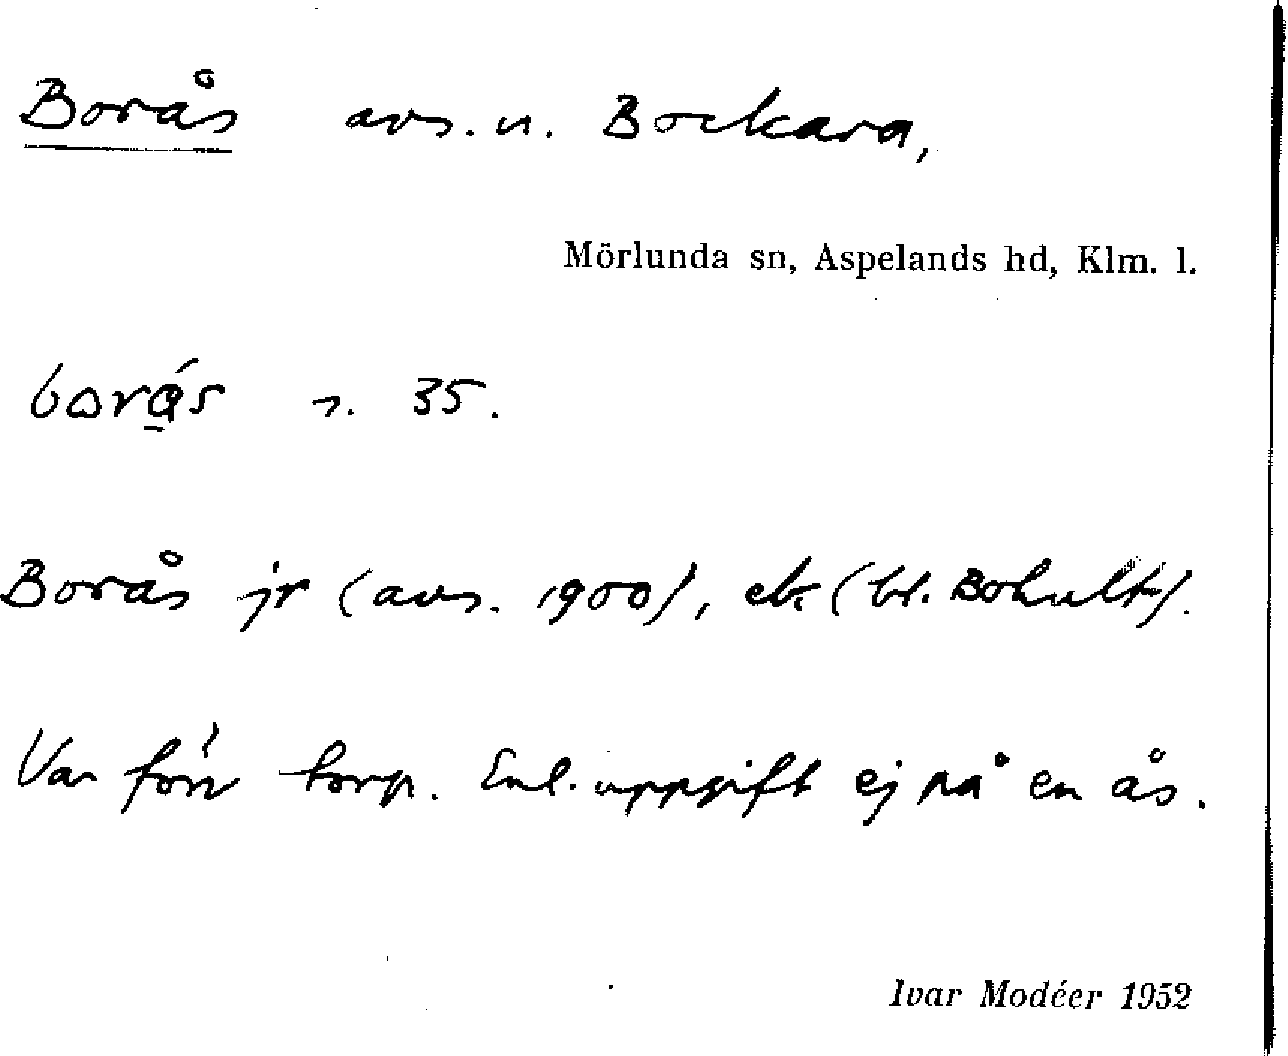 Borås avs. u. Bockara,
Mörlunda sn, Aspelands hd, Klm. l.
35.
Borås jr (avs. 1900), ek (bl. Bohult).
Var förr torp. Enl. uppgift ej på en ås.
Ivar Modéer 1952